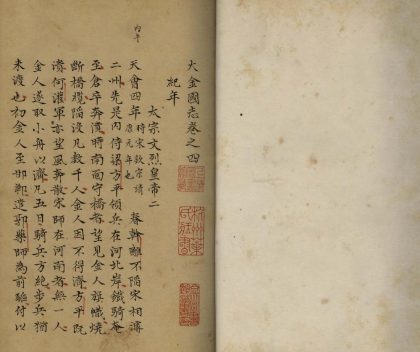 大金國志卷之四
紀年
太宗文烈皇帝二
丙午
天會四年時宋欽宗靖康元年也春斡離不陷宋相濬
二州先是內侍梁方平領兵在河北岸鐵騎奄
至倉卒奔潰時南面守橋者望見金人旗幟燒
斷橋纜陷沒凡數千人金人因不得濟方平既
潰何灌軍亦望風奔散宋師在河南者無一人
金人遂取小舟以濟凡五日騎兵方絕步兵猶
未渡也初金人至邯鄲遣郭藥師為前驅付以